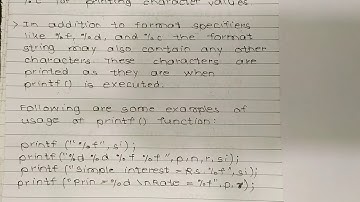 %c for printing character values.
> In addition to format specifiers
like %f, %d, and %c the format
string may also contain any other
characters. These characters are
printed as they are when
printf() is executed.
Following are some examples of
usage of printf() function:
printf ("%f", si);
printf("%d %d %f %f", p,n,r,si);
printf ("simple interest = Rs. %f", si);
printf ("Prin = %d \nRate = %f", p, r);